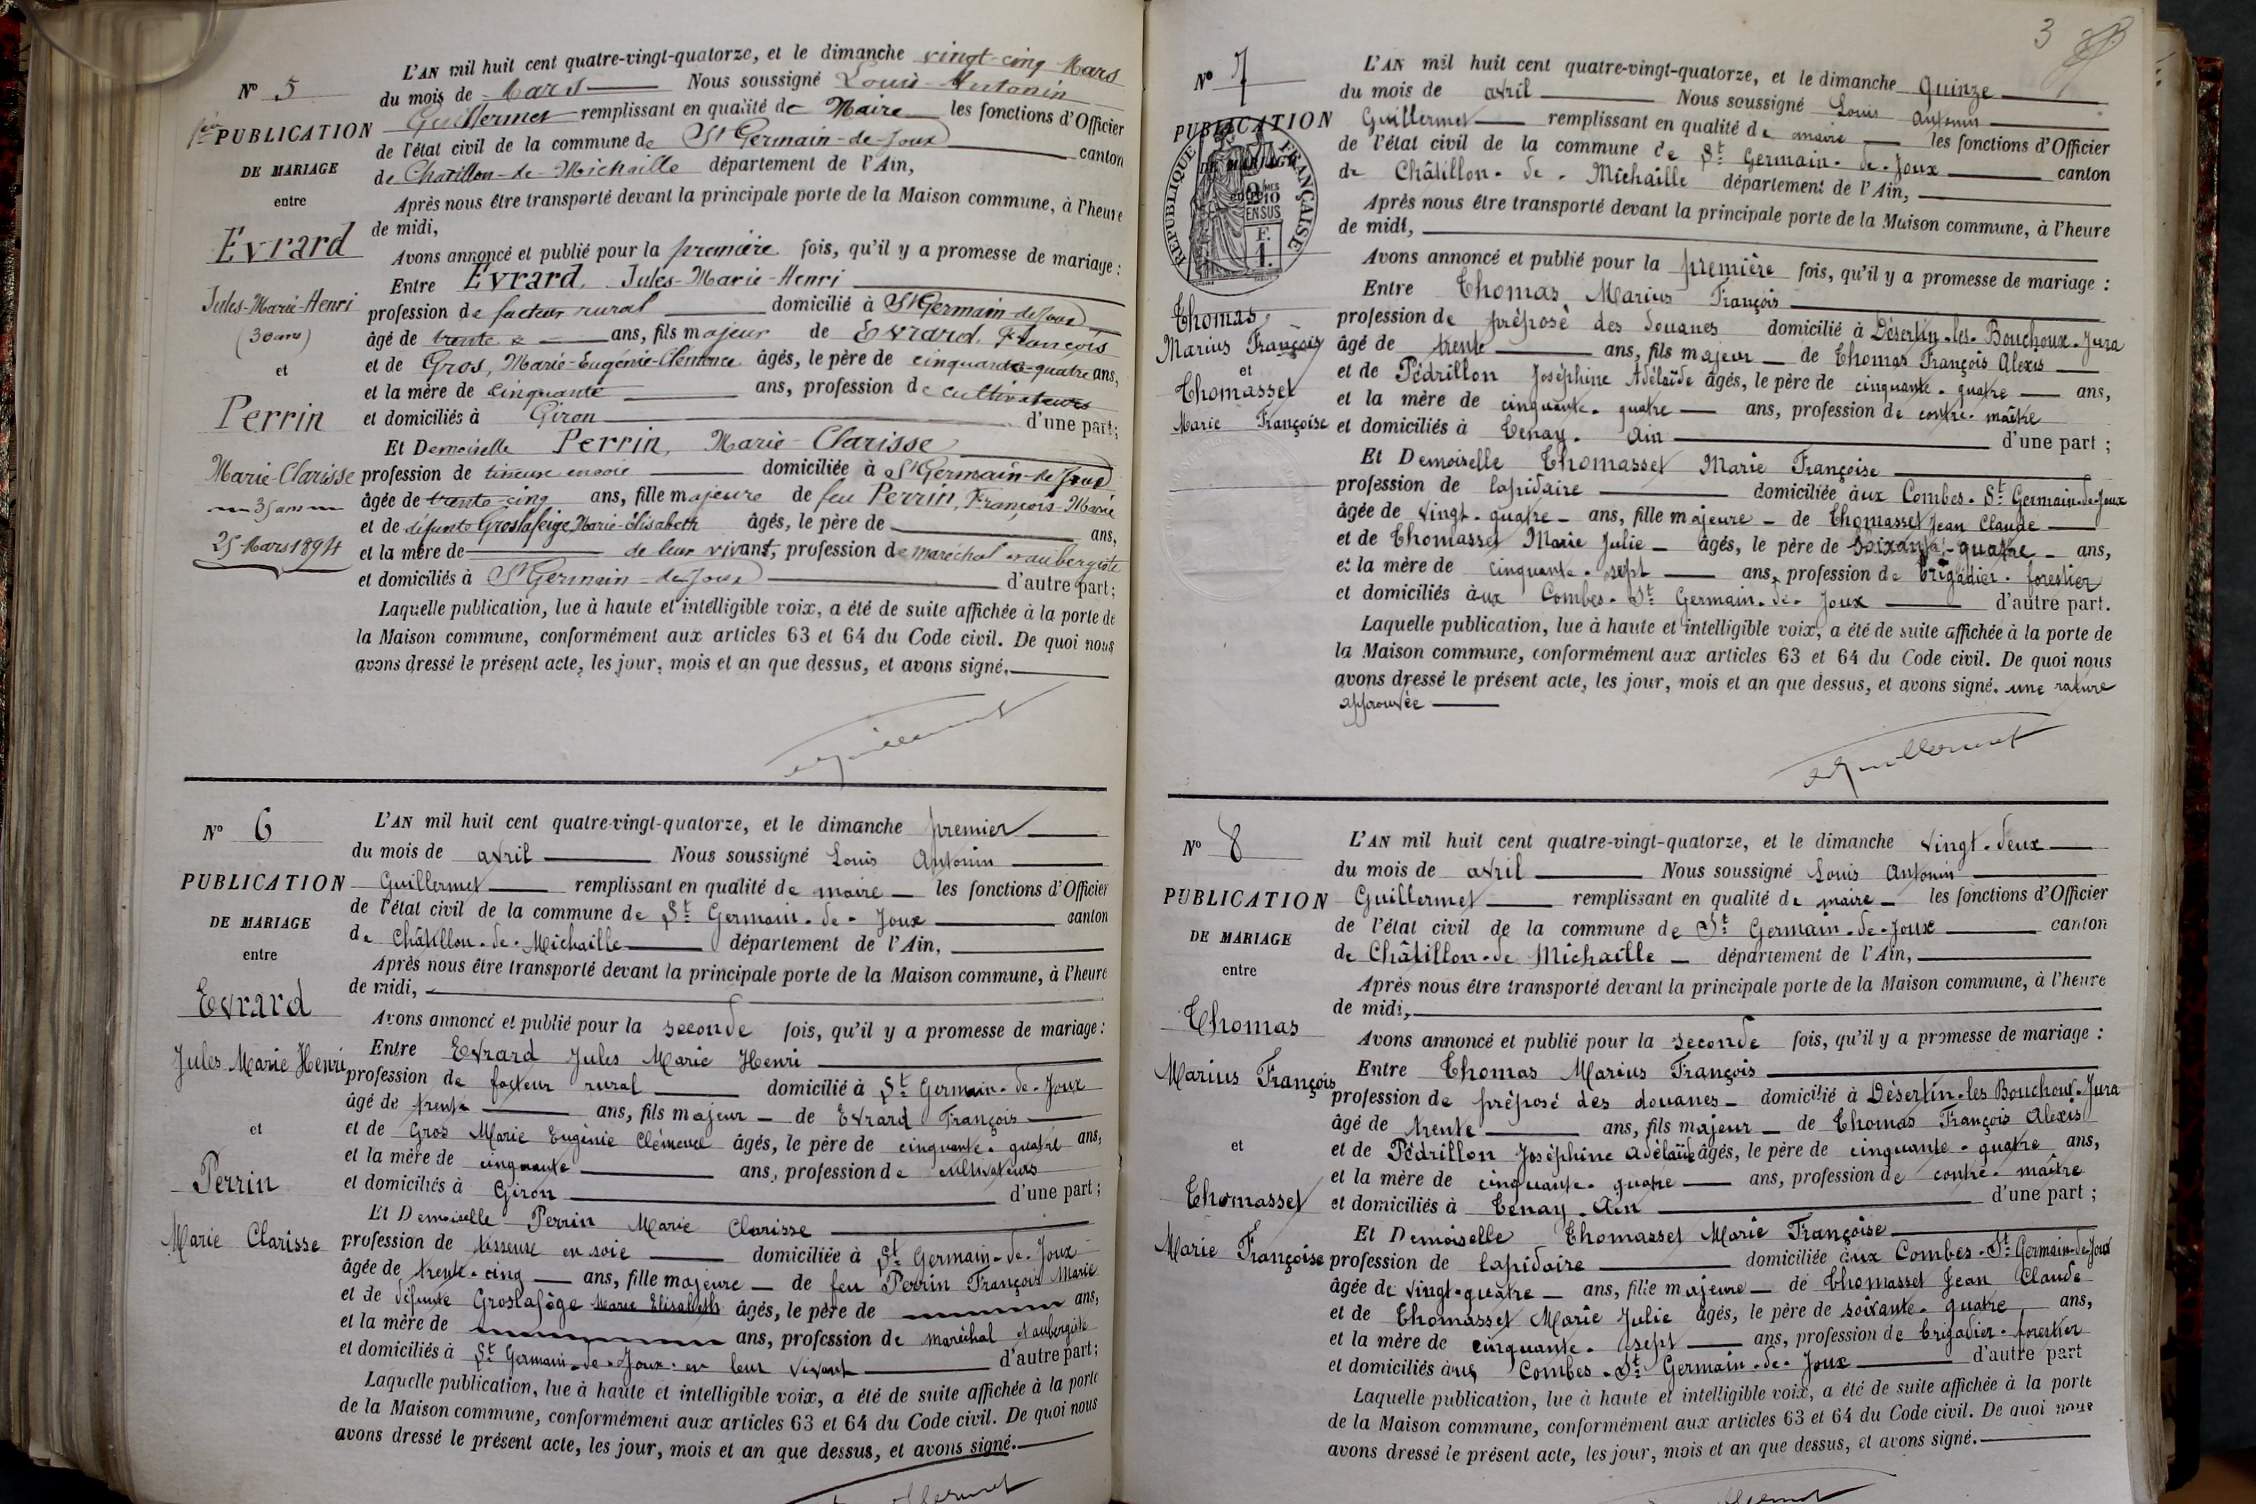 N° 5
1ère PUBLICATION
DE MARIAGE
entre
Evrard
Jules-Marie-Henri
(30 ans)
et
Perrin
Marie-Clarisse
35 ans
25 Mars 1894
L'AN mil huit cent quatre-vingt-quatorze, et le dimanche vingt-cinq Mars
du mois de Mars Nous soussigné Louis-Antonin
Guillermet remplissant en qualité de Maire les fonctions d'Officier
de l'état civil de la commune de St Germain-de-Joux canton
de Chatillon-de-Michaille département de l'Ain,
Après nous être transporté devant la principale porte de la Maison commune, à l'heure
de midi,
Avons annoncé et publié pour la première fois, qu'il y a promesse de mariage :
Entre Evrard, Jules-Marie-Henri
profession de facteur rural domicilié à St Germain-de-Joux
âgé de trente ans, fils majeur de Evrard, François
et de Gros, Marie-Eugénie-Clémence âgés, le père de cinquante-quatre ans,
et la mère de cinquante ans, profession de cultivateurs
et domiciliés à Giron d'une part;
Et Demoiselle Perrin, Marie-Clarisse
profession de tisseuse en soie domiciliée à St Germain-de-Joux
âgée de trente-cinq ans, fille majeure de feu Perrin, François-Marie
et de défunte Groslafeige, Marie-Élisabeth âgés, le père de ans,
et la mère de de leur vivant, profession de maréchal & aubergiste
et domiciliés à St Germain-de-Joux d'autre part;
Laquelle publication, lue à haute et intelligible voix, a été de suite affichée à la porte de
la Maison commune, conformément aux articles 63 et 64 du Code civil. De quoi nous
avons dressé le présent acte, les jour, mois et an que dessus, et avons signé.
Guillermet
N° 6
PUBLICATION
DE MARIAGE
entre
Evrard
Jules Marie Henri
et
Perrin
Marie Clarisse
L'AN mil huit cent quatre-vingt-quatorze, et le dimanche premier
du mois de avril Nous soussigné Louis Antonin
Guillermet remplissant en qualité de maire les fonctions d'Officier
de l'état civil de la commune de St Germain-de-Joux canton
de Châtillon-de-Michaille département de l'Ain,
Après nous être transporté devant la principale porte de la Maison commune, à l'heure
de midi,
Avons annoncé et publié pour la seconde fois, qu'il y a promesse de mariage :
Entre Evrard Jules Marie Henri
profession de facteur rural domicilié à St Germain-de-Joux
âgé de trente ans, fils majeur de Evrard François
et de Gros Marie Eugénie Clémence âgés, le père de cinquante-quatre ans,
et la mère de cinquante ans, profession de cultivateurs
et domiciliés à Giron d'une part;
Et Demoiselle Perrin Marie Clarisse
profession de tisseuse en soie domiciliée à St Germain-de-Joux
âgée de trente-cinq ans, fille majeure de feu Perrin François Marie
et de défunte Groslafège Marie Elisabeth âgés, le père de ans,
et la mère de ans, profession de maréchal et aubergiste
et domiciliés à St Germain-de-Joux en leur vivant d'autre part;
Laquelle publication, lue à haute et intelligible voix, a été de suite affichée à la porte
de la Maison commune, conformément aux articles 63 et 64 du Code civil. De quoi nous
avons dressé le présent acte, les jour, mois et an que dessus, et avons signé.
3
N° 7
PUBLICATION
DE MARIAGE
RÉPUBLIQUE FRANÇAISE
2 10MES
EN SUS
F.
1.
Thomas
Marius François
et
Thomasset
Marie Françoise
L'AN mil huit cent quatre-vingt-quatorze, et le dimanche quinze
du mois de avril Nous soussigné Louis Antonin
Guillermet remplissant en qualité de maire les fonctions d'Officier
de l'état civil de la commune de St Germain-de-Joux canton
de Châtillon-de-Michaille département de l'Ain,
Après nous être transporté devant la principale porte de la Maison commune, à l'heure
de midi,
Avons annoncé et publié pour la première fois, qu'il y a promesse de mariage :
Entre Thomas Marius François
profession de préposé des douanes domicilié à Désertin-les-Bouchoux-Jura
âgé de trente ans, fils majeur de Thomas François Alexis
et de Pédrillon Joséphine Adélaïde âgés, le père de cinquante-quatre ans,
et la mère de cinquante-quatre ans, profession de contre-maître
et domiciliés à Tenay-Ain d'une part ;
Et Demoiselle Thomasset Marie Françoise
profession de lapidaire domiciliée aux Combes-St Germain-de-Joux
âgée de vingt-quatre ans, fille majeure de Thomasset Jean Claude
et de Thomasset Marie Julie âgés, le père de soixante-quatre ans,
et la mère de cinquante-sept ans, profession de brigadier-forestier
et domiciliés aux Combes-St Germain-de-Joux d'autre part.
Laquelle publication, lue à haute et intelligible voix, a été de suite affichée à la porte de
la Maison commune, conformément aux articles 63 et 64 du Code civil. De quoi nous
avons dressé le présent acte, les jour, mois et an que dessus, et avons signé. une rature
approuvée
Guillermet
N° 8
PUBLICATION
DE MARIAGE
entre
Thomas
Marius François
et
Thomasset
Marie Françoise
L'AN mil huit cent quatre-vingt-quatorze, et le dimanche vingt-deux
du mois de avril Nous soussigné Louis Antonin
Guillermet remplissant en qualité de maire les fonctions d'Officier
de l'état civil de la commune de St Germain-de-Joux canton
de Châtillon-de Michaille département de l'Ain,
Après nous être transporté devant la principale porte de la Maison commune, à l'heure
de midi,
Avons annoncé et publié pour la seconde fois, qu'il y a promesse de mariage :
Entre Thomas Marius François
profession de préposé des douanes domicilié à Désertin-les Bouchoux-Jura
âgé de trente ans, fils majeur de Thomas François Alexis
et de Pédrillon Joséphine Adélaïde âgés, le père de cinquante-quatre ans,
et la mère de cinquante-quatre ans, profession de contre-maître
et domiciliés à Tenay-Ain d'une part ;
Et Demoiselle Thomasset Marie Françoise
profession de lapidaire domiciliée aux Combes-St Germain-de-Joux
âgée de vingt-quatre ans, fille majeure de Thomasset Jean Claude
et de Thomasset Marie Julie âgés, le père de soixante-quatre ans,
et la mère de cinquante-sept ans, profession de brigadier-forestier
et domiciliés aux Combes-St Germain-de-Joux d'autre part
Laquelle publication, lue à haute et intelligible voix, a été de suite affichée à la porte
de la Maison commune, conformément aux articles 63 et 64 du Code civil. De quoi nous
avons dressé le présent acte, les jour, mois et an que dessus, et avons signé.